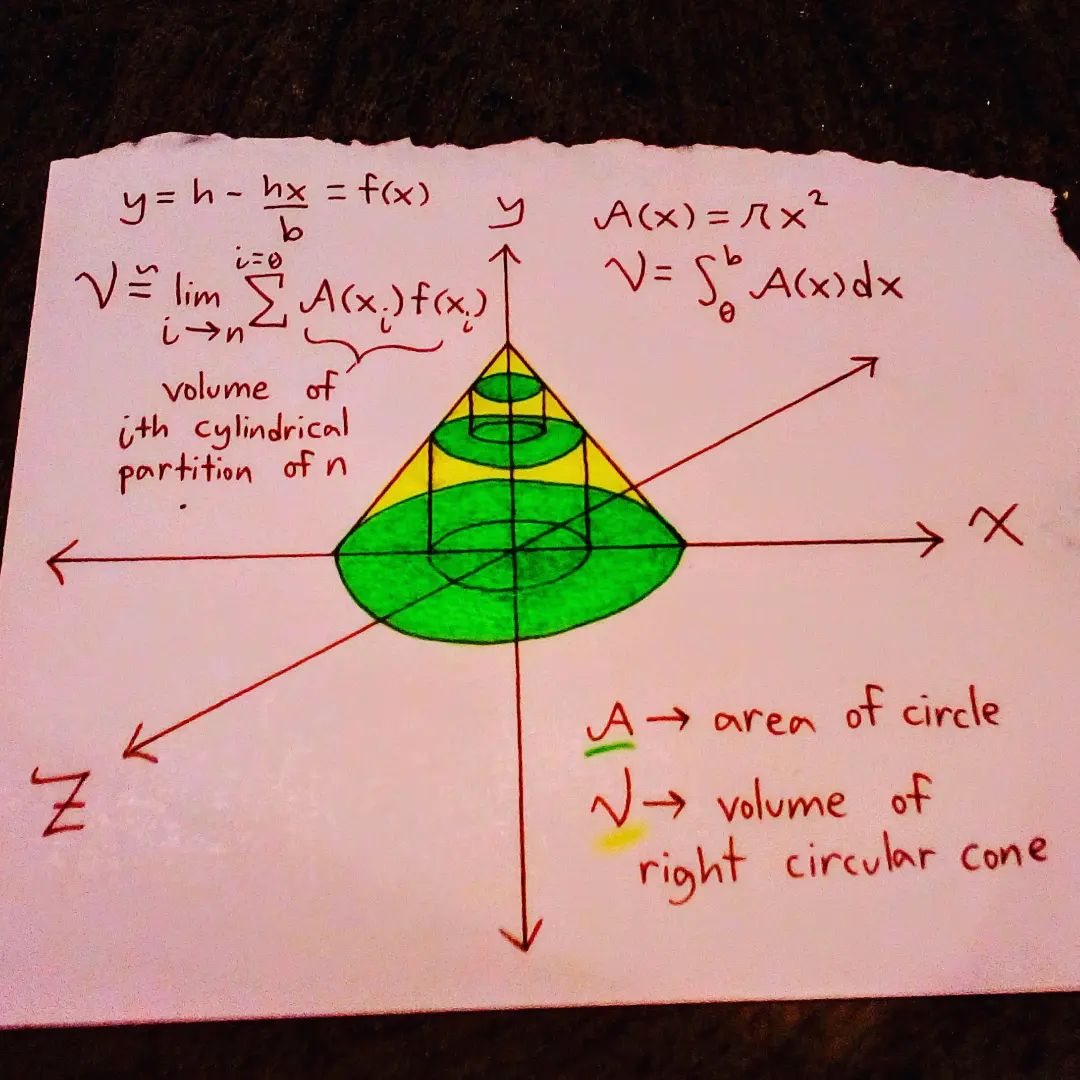 y = h - hx/b = f(x)
V ≈ lim i→n Σ i=0 A(x_i)f(x_i)
volume of
ith cylindrical
partition of n
y
A(x) = πx²
V = ∫₀ᵇ A(x)dx
x
z
A → area of circle
V → volume of
right circular cone